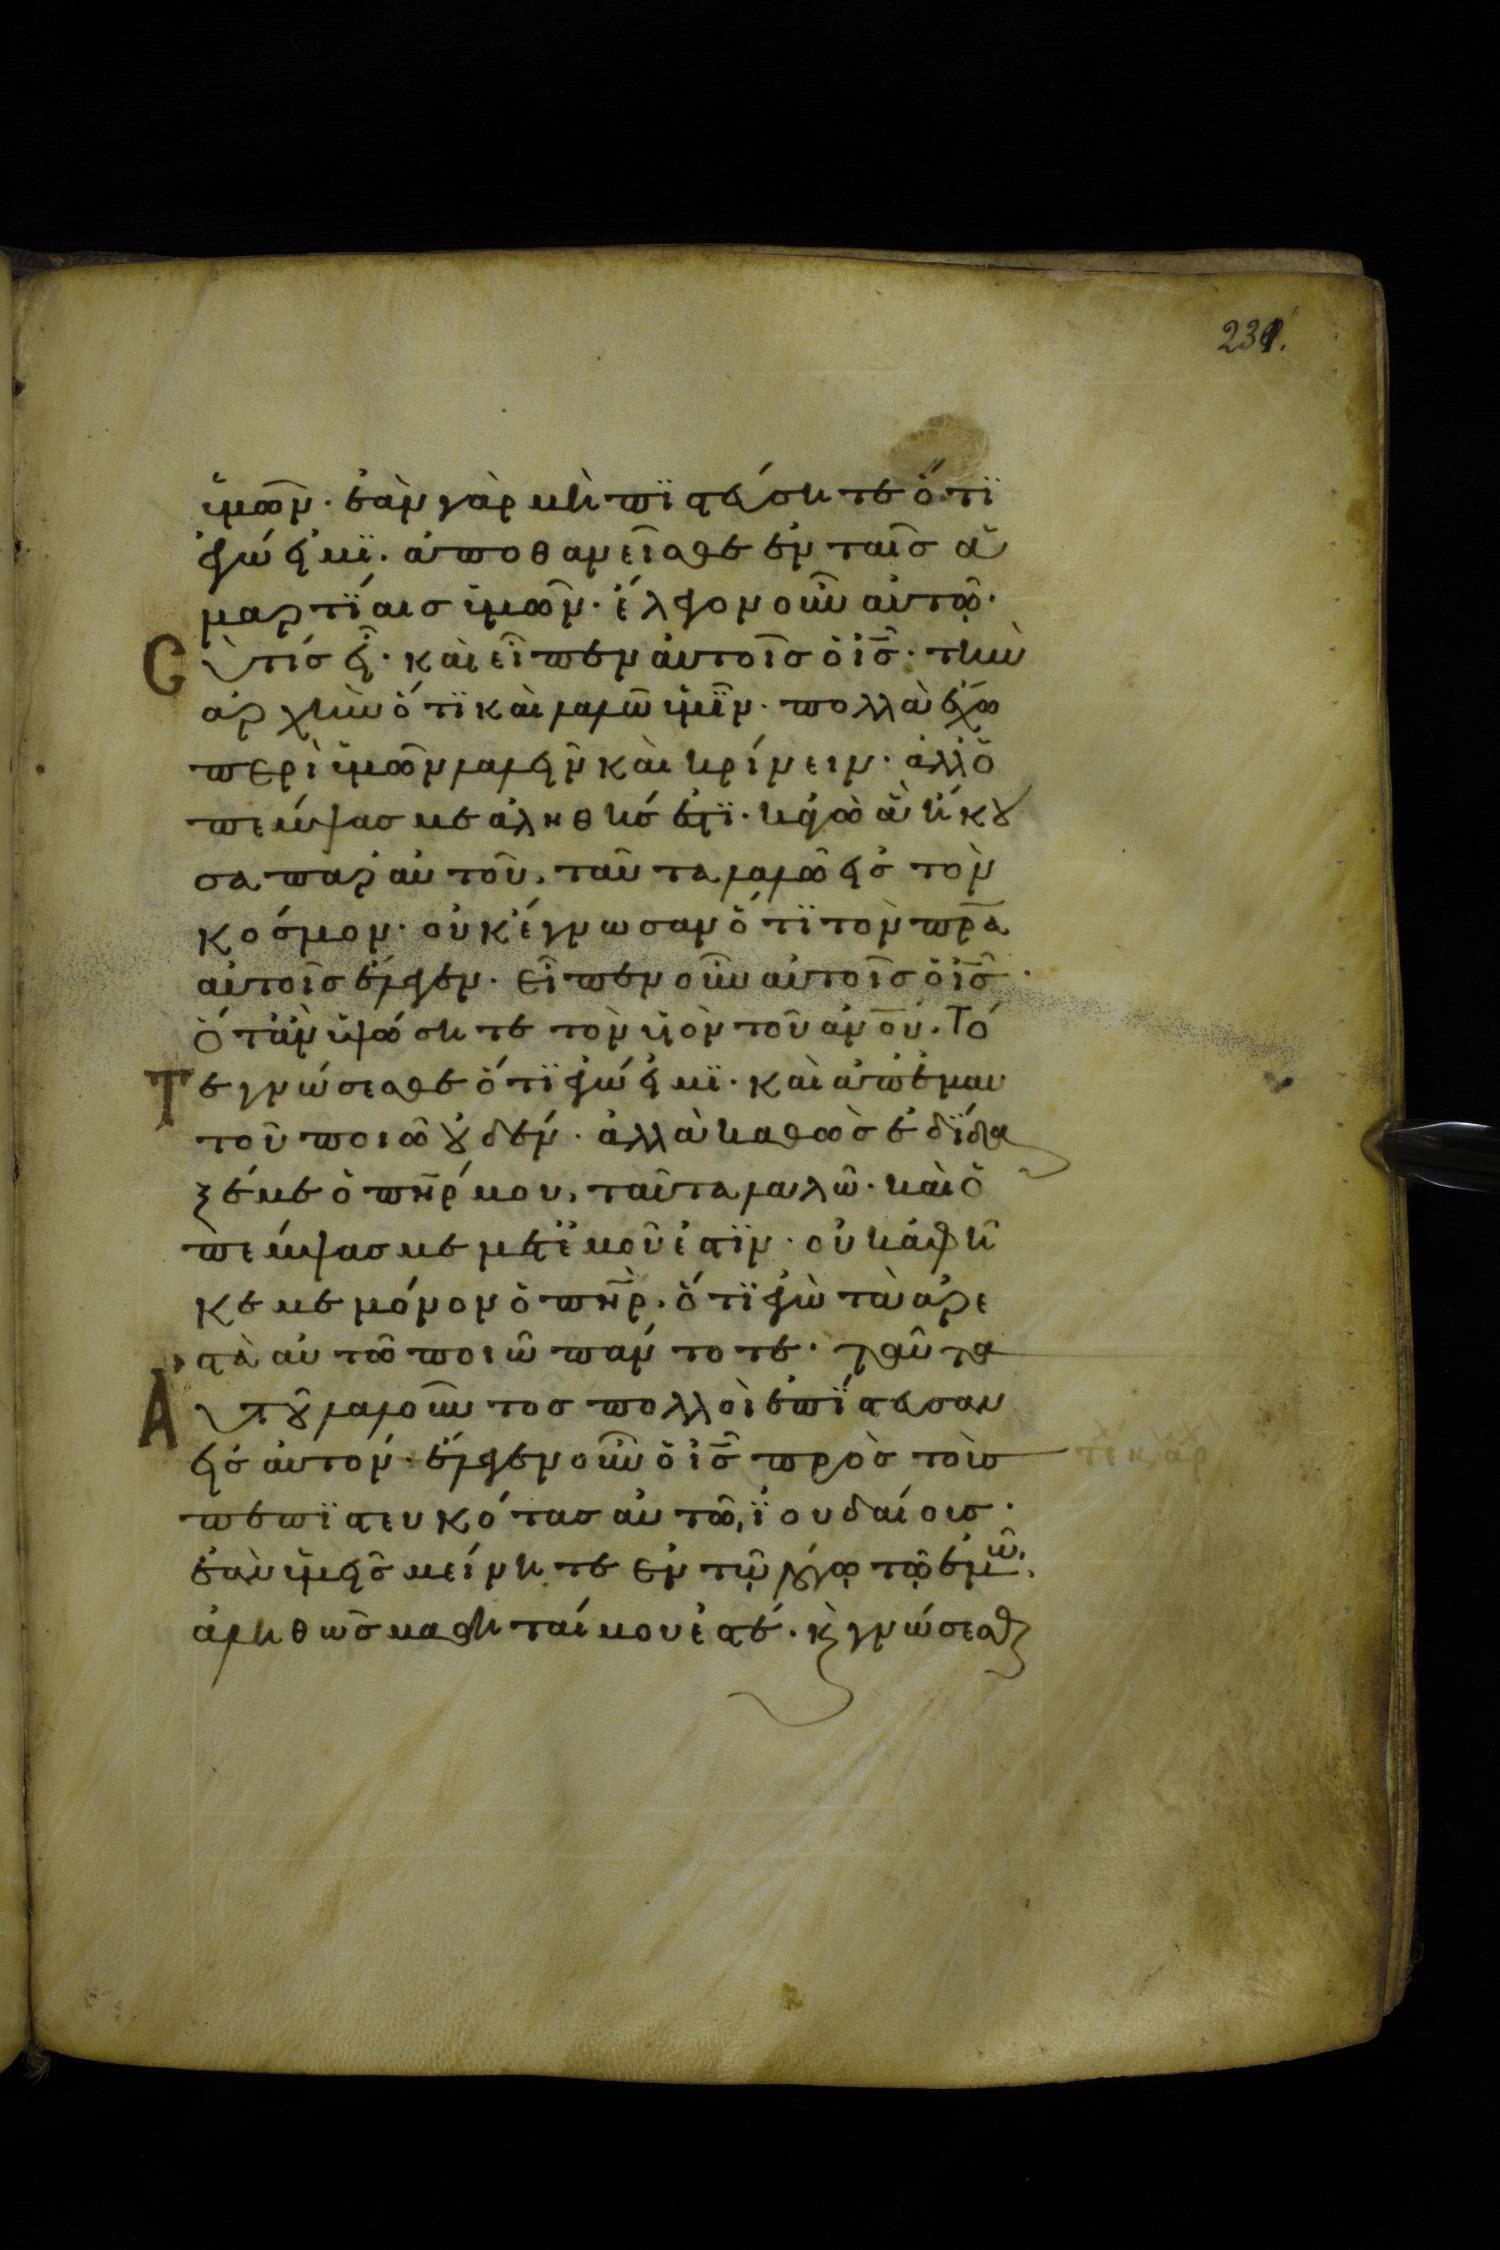 231.
ὑμῶν· ἐὰν γὰρ μὴ πϊστεύσητε ὅτϊ
ἐγώ εἰμϊ· ἀποθανεῖσθε ἐν ταῖς ἁ
μαρτϊαις ὑμῶν· ἔλεγον οὖν αὐτῷ·
Σὺ τίς εἶ· καὶ εἶπεν αὐτοῖς ὁ ἰς̅· τὴν
ἀρχὴν ὅτϊ καὶ λαλῶ ὑμῖν· πολλὰ ἔχω
περὶ ὑμῶν λαλεῖν καὶ κρίνειν· ἀλλ' ὁ
πέμψας με ἀληθής ἐστϊ· κἀγὼ ἃ ἤκου
σα παρ' αὐτοῦ, ταῦτα λαλῶ εἰς τὸν
κόσμον· οὐκ ἔγνωσαν ὅτϊ τὸν πρ̅α
αὐτοῖς ἔλεγεν· εἶπεν οὖν αὐτοῖς ὁ ἰς̅·
ὅταν ὑψώσητε τὸν υἱὸν τοῦ αν̅ου· Τό
τε γνώσεσθε ὅτϊ ἐγώ εἰμϊ· καὶ ἀπ' ἐμαυ
τοῦ ποιῶ οὐδέν· ἀλλὰ καθὼς ἐδϊδα
ξέ με ὁ πη̅ρ μου, ταῦτα λαλῶ· καὶ ὁ
πέμψας με μετ' ἐμοῦ ἐστϊν· οὐκ ἀφῆ
κέ με μόνον ὁ πη̅ρ· ὅτϊ ἐγὼ τὰ ἀρε
στὰ αὐτῶ ποιῶ πάντοτε· ταῦτα
Αὐτοῦ λαλοῦντος πολλοὶ ἐπϊστευσαν
εἰς αὐτόν· ἔλεγεν οὖν ὁ ἰς̅ πρὸς τοὺς
πεπϊστευκότας αὐτῶ, ϊουδαίους·
ἐὰν ὑμεῖς μείνητε ἐν τῷ λόγῳ τῷ ἐμῶ,
ἀληθῶς μαθηταί μου ἐστέ· κ γνώσεσθε